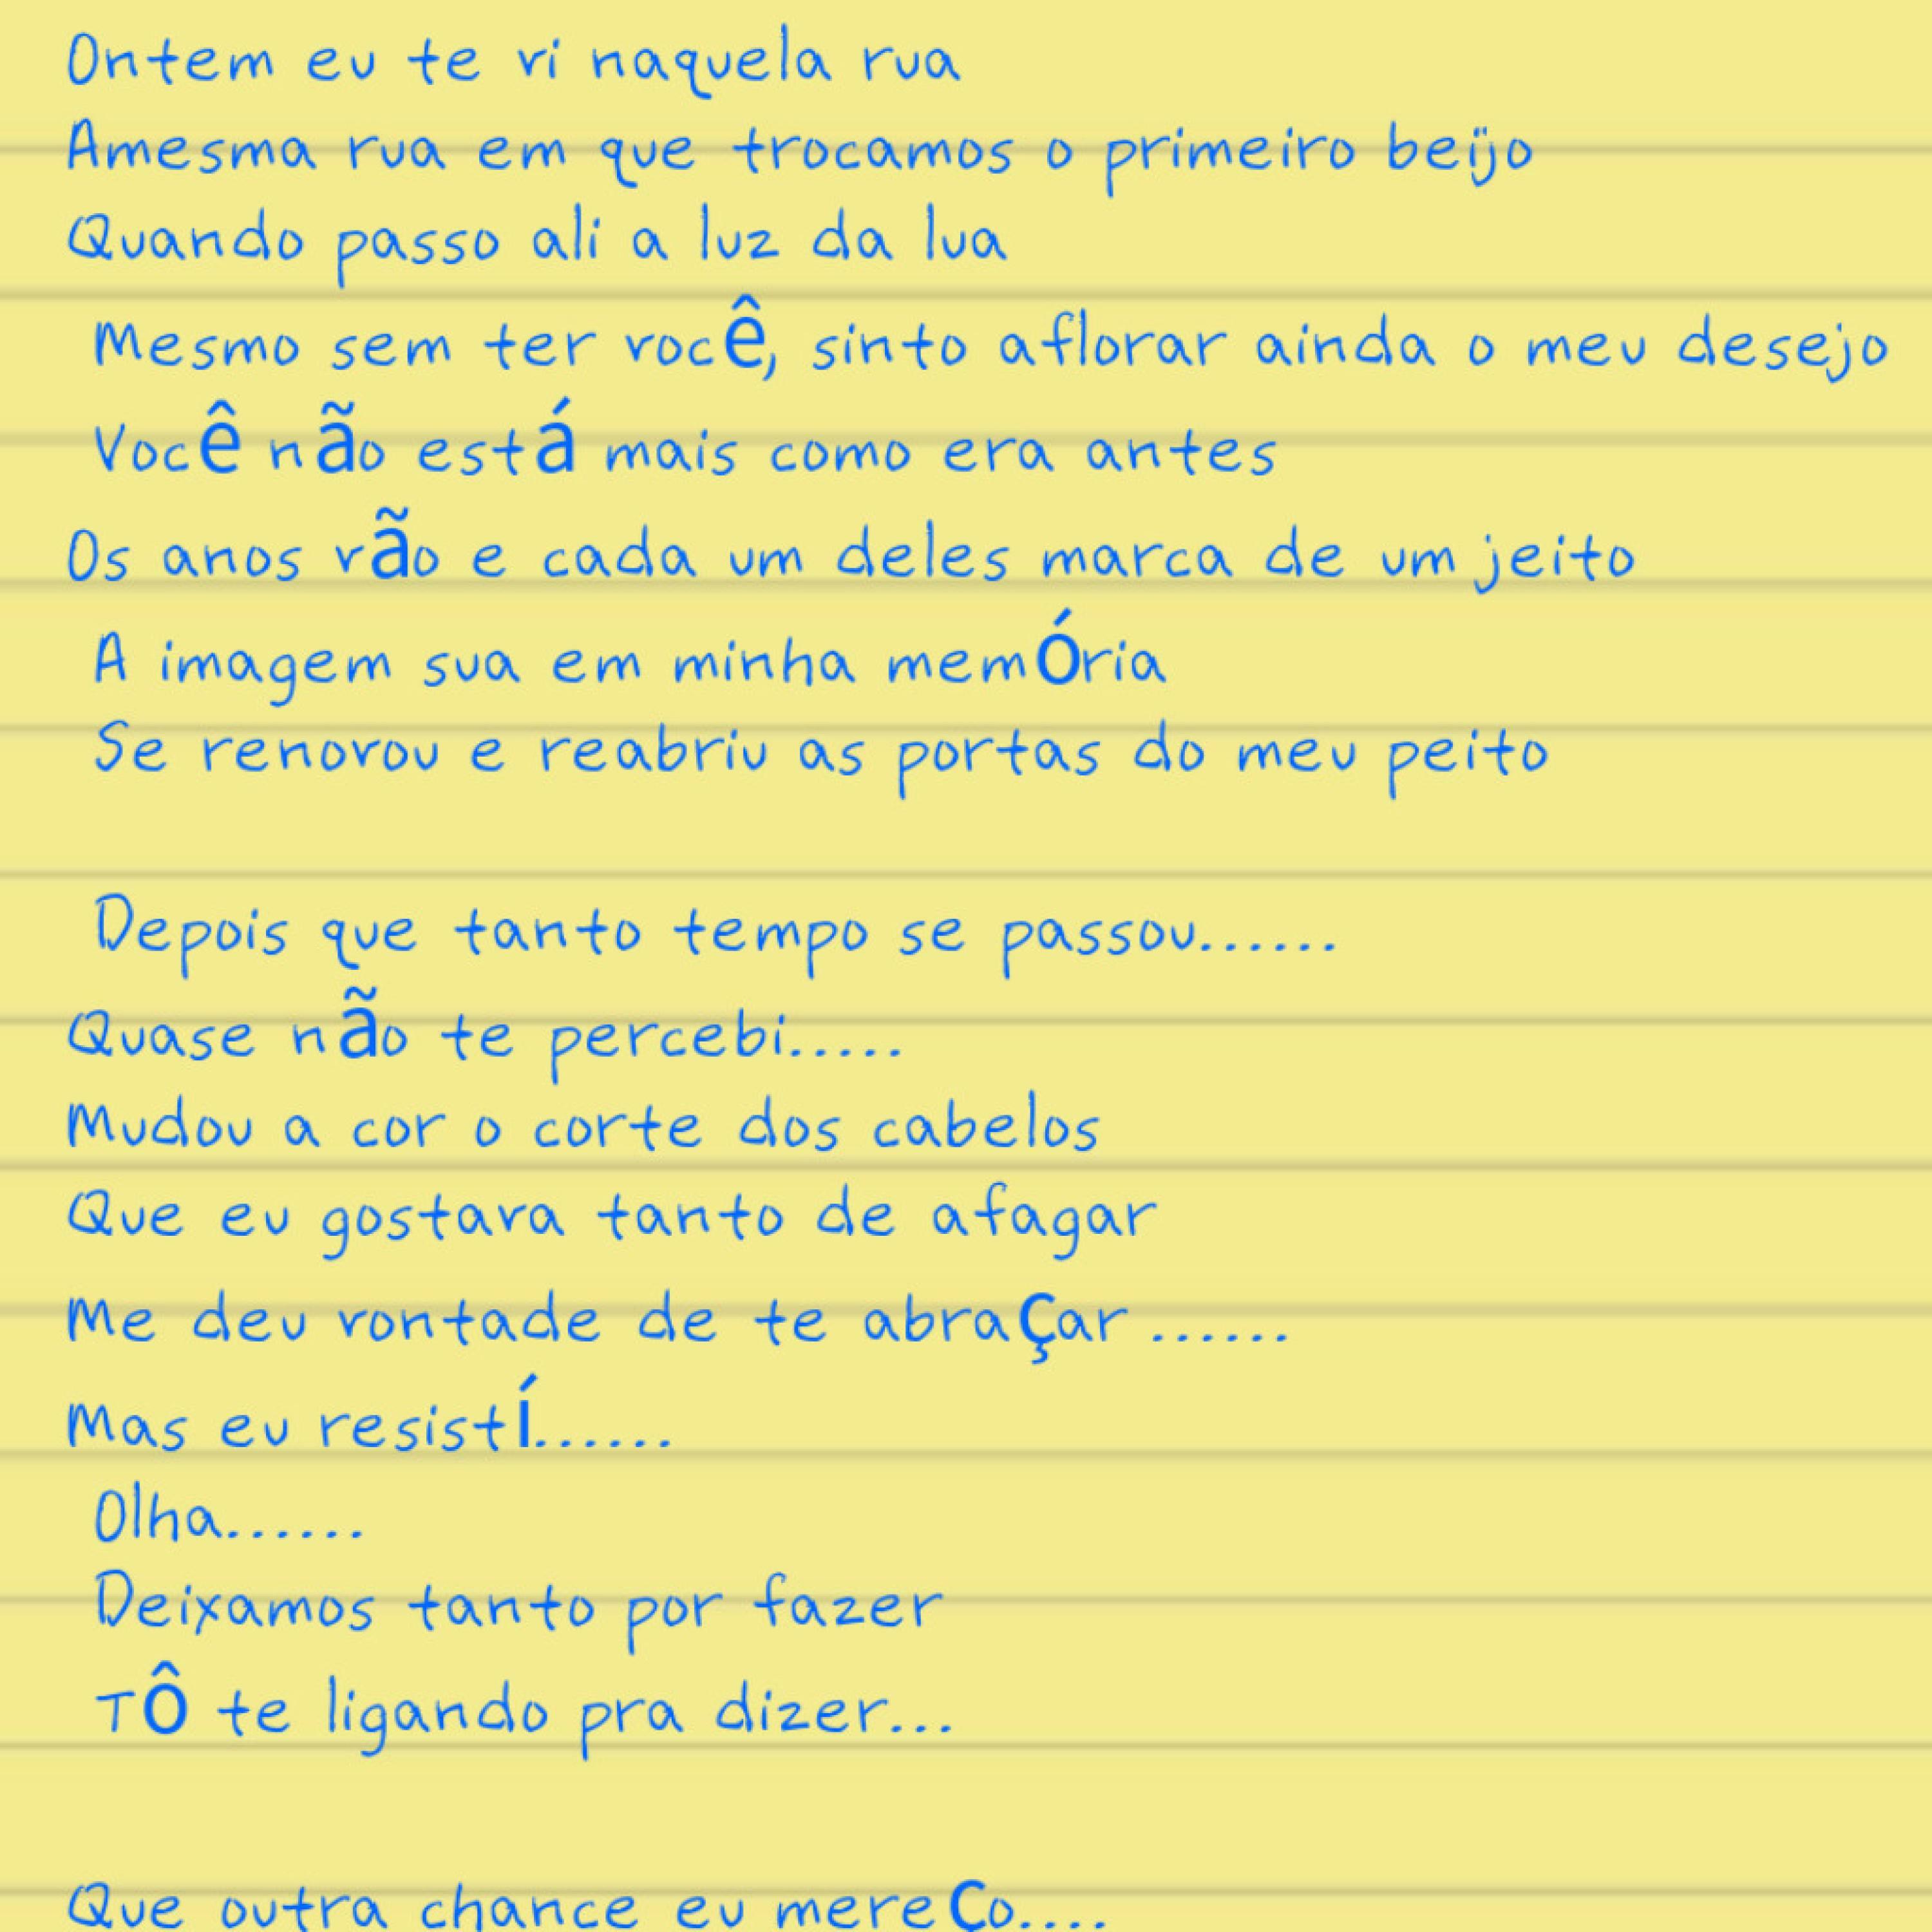 Ontem eu te vi naquela rua
Amesma rua em que trocamos o primeiro beijo
Quando passo ali a luz da lua
Mesmo sem ter você, sinto aflorar ainda o meu desejo
Você não está mais como era antes
Os anos vão e cada um deles marca de um jeito
A imagem sua em minha memória
Se renovou e reabriu as portas do meu peito
Depois que tanto tempo se passou......
Quase não te percebi.....
Mudou a cor o corte dos cabelos
Que eu gostava tanto de afagar
Me deu vontade de te abraçar ......
Mas eu resistí......
Olha......
Deixamos tanto por fazer
TÔ te ligando pra dizer...
Que outra chance eu mereço....